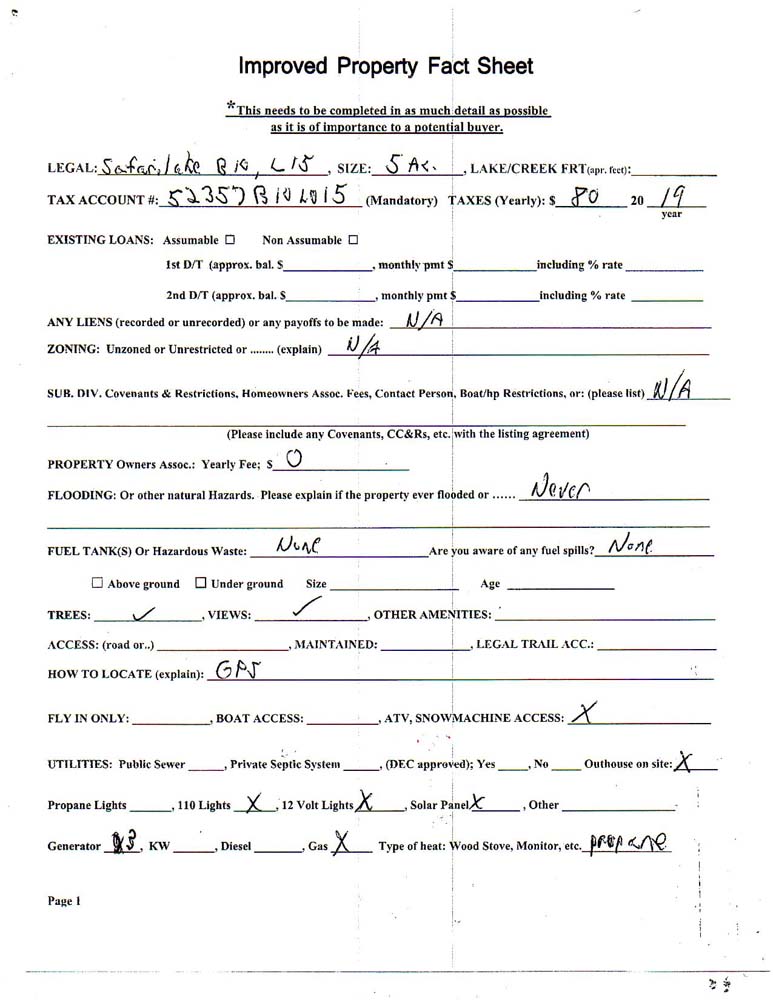 Improved Property Fact Sheet
*This needs to be completed in as much detail as possible
as it is of importance to a potential buyer.
LEGAL: Safari lake B 10, L 15, SIZE: 5 Ac., LAKE/CREEK FRT(apr. feet):
TAX ACCOUNT #: 52357 B10 L015 (Mandatory) TAXES (Yearly): $ 80 20 19
year
EXISTING LOANS: Assumable ☐ Non Assumable ☐
1st D/T (approx. bal. $____, monthly pmt $____including % rate ____
2nd D/T (approx. bal. $____, monthly pmt $____including % rate ____
ANY LIENS (recorded or unrecorded) or any payoffs to be made: N/A
ZONING: Unzoned or Unrestricted or ........ (explain) N/A
SUB. DIV. Covenants & Restrictions, Homeowners Assoc. Fees, Contact Person, Boat/hp Restrictions, or: (please list) N/A
(Please include any Covenants, CC&Rs, etc. with the listing agreement)
PROPERTY Owners Assoc.: Yearly Fee; $ 0
FLOODING: Or other natural Hazards. Please explain if the property ever flooded or ...... Never
FUEL TANK(S) Or Hazardous Waste: None Are you aware of any fuel spills? None
☐ Above ground ☐ Under ground Size ____ Age ____
TREES: ✓, VIEWS: ✓, OTHER AMENITIES:
ACCESS: (road or..) ____, MAINTAINED: ____, LEGAL TRAIL ACC.: ____
HOW TO LOCATE (explain): GPS
FLY IN ONLY: ____, BOAT ACCESS: ____, ATV, SNOWMACHINE ACCESS: X
UTILITIES: Public Sewer ____, Private Septic System ____, (DEC approved); Yes ____, No ____ Outhouse on site: X
Propane Lights ____, 110 Lights X, 12 Volt Lights X, Solar Panel X, Other ____
Generator 3, KW ____, Diesel ____, Gas X Type of heat: Wood Stove, Monitor, etc. propane
Page 1